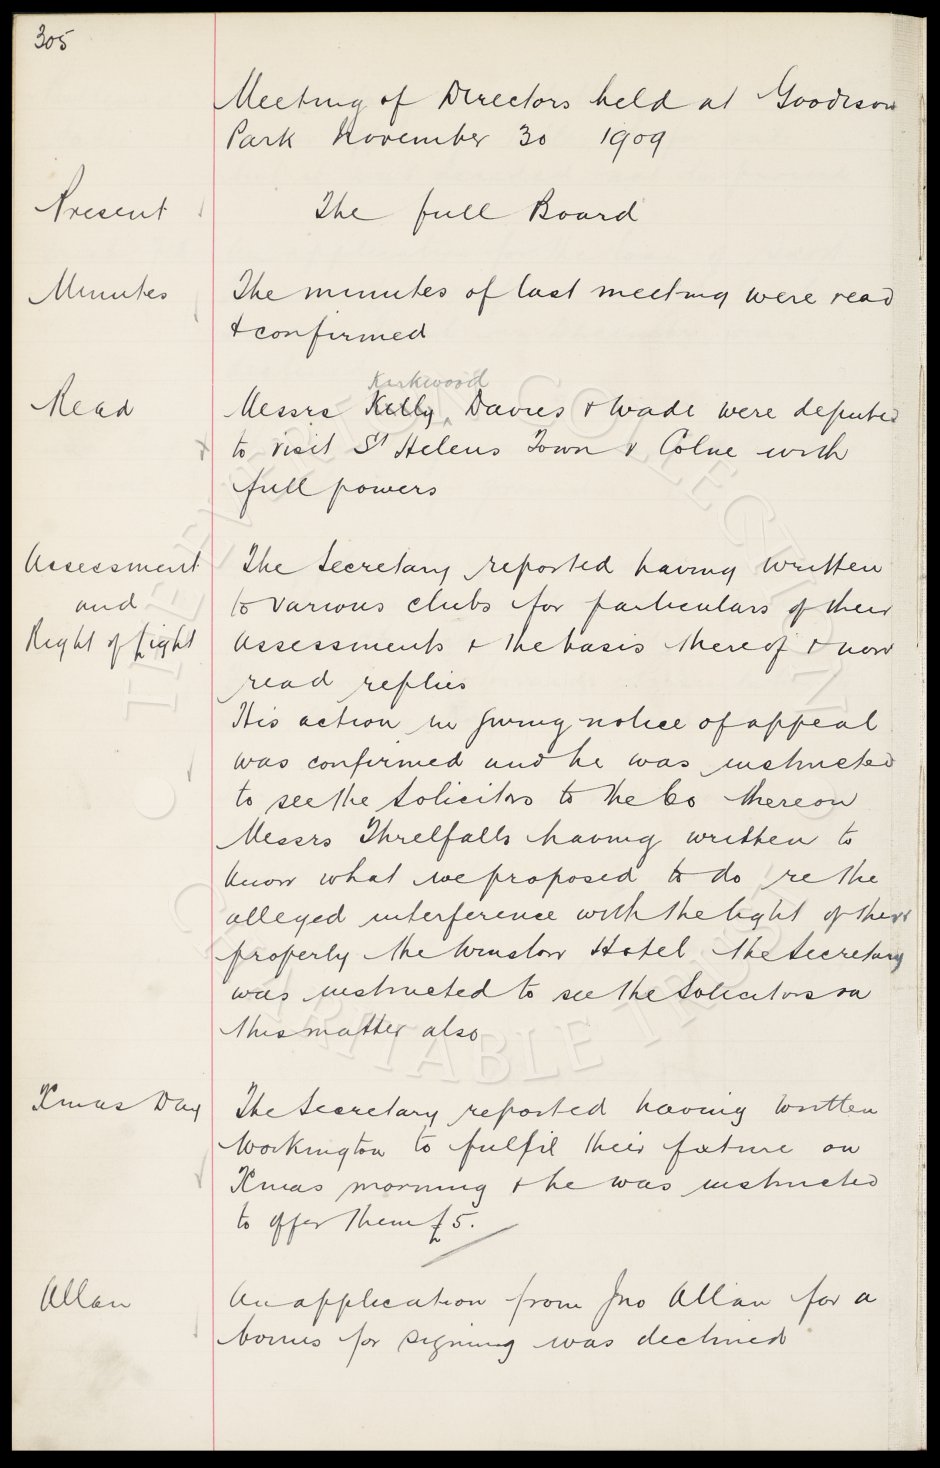 305
Meeting of Directors held at Goodison
Park November 30 1909
Present The full Board
Minutes The minutes of last meeting were read
& confirmed
Kirkwood
Read Messrs Kelly, Davies & Wade were deputed
to visit St Helens Town & Colne with
full powers
Assessment The Secretary reported having written
and to various clubs for particulars of their
Right of Light assessments & the basis thereof & now
read replies
His action in giving notice of appeal
was confirmed and he was instructed
to see the Solicitors to the Co thereon
Messrs Threlfalls having written to
know what we proposed to do re the
alleged interference with the light of their
property the Winslow Hotel the Secretary
was instructed to see the Solicitors on
this matter also
Xmas Day The Secretary reported having written
Workington to fulfil their fixture on
Xmas morning & he was instructed
to offer them £5.
Allan An application from Jno Allan for a
bonus for signing was declined
THE EVERTON COLLECTION
CHARITABLE TRUST